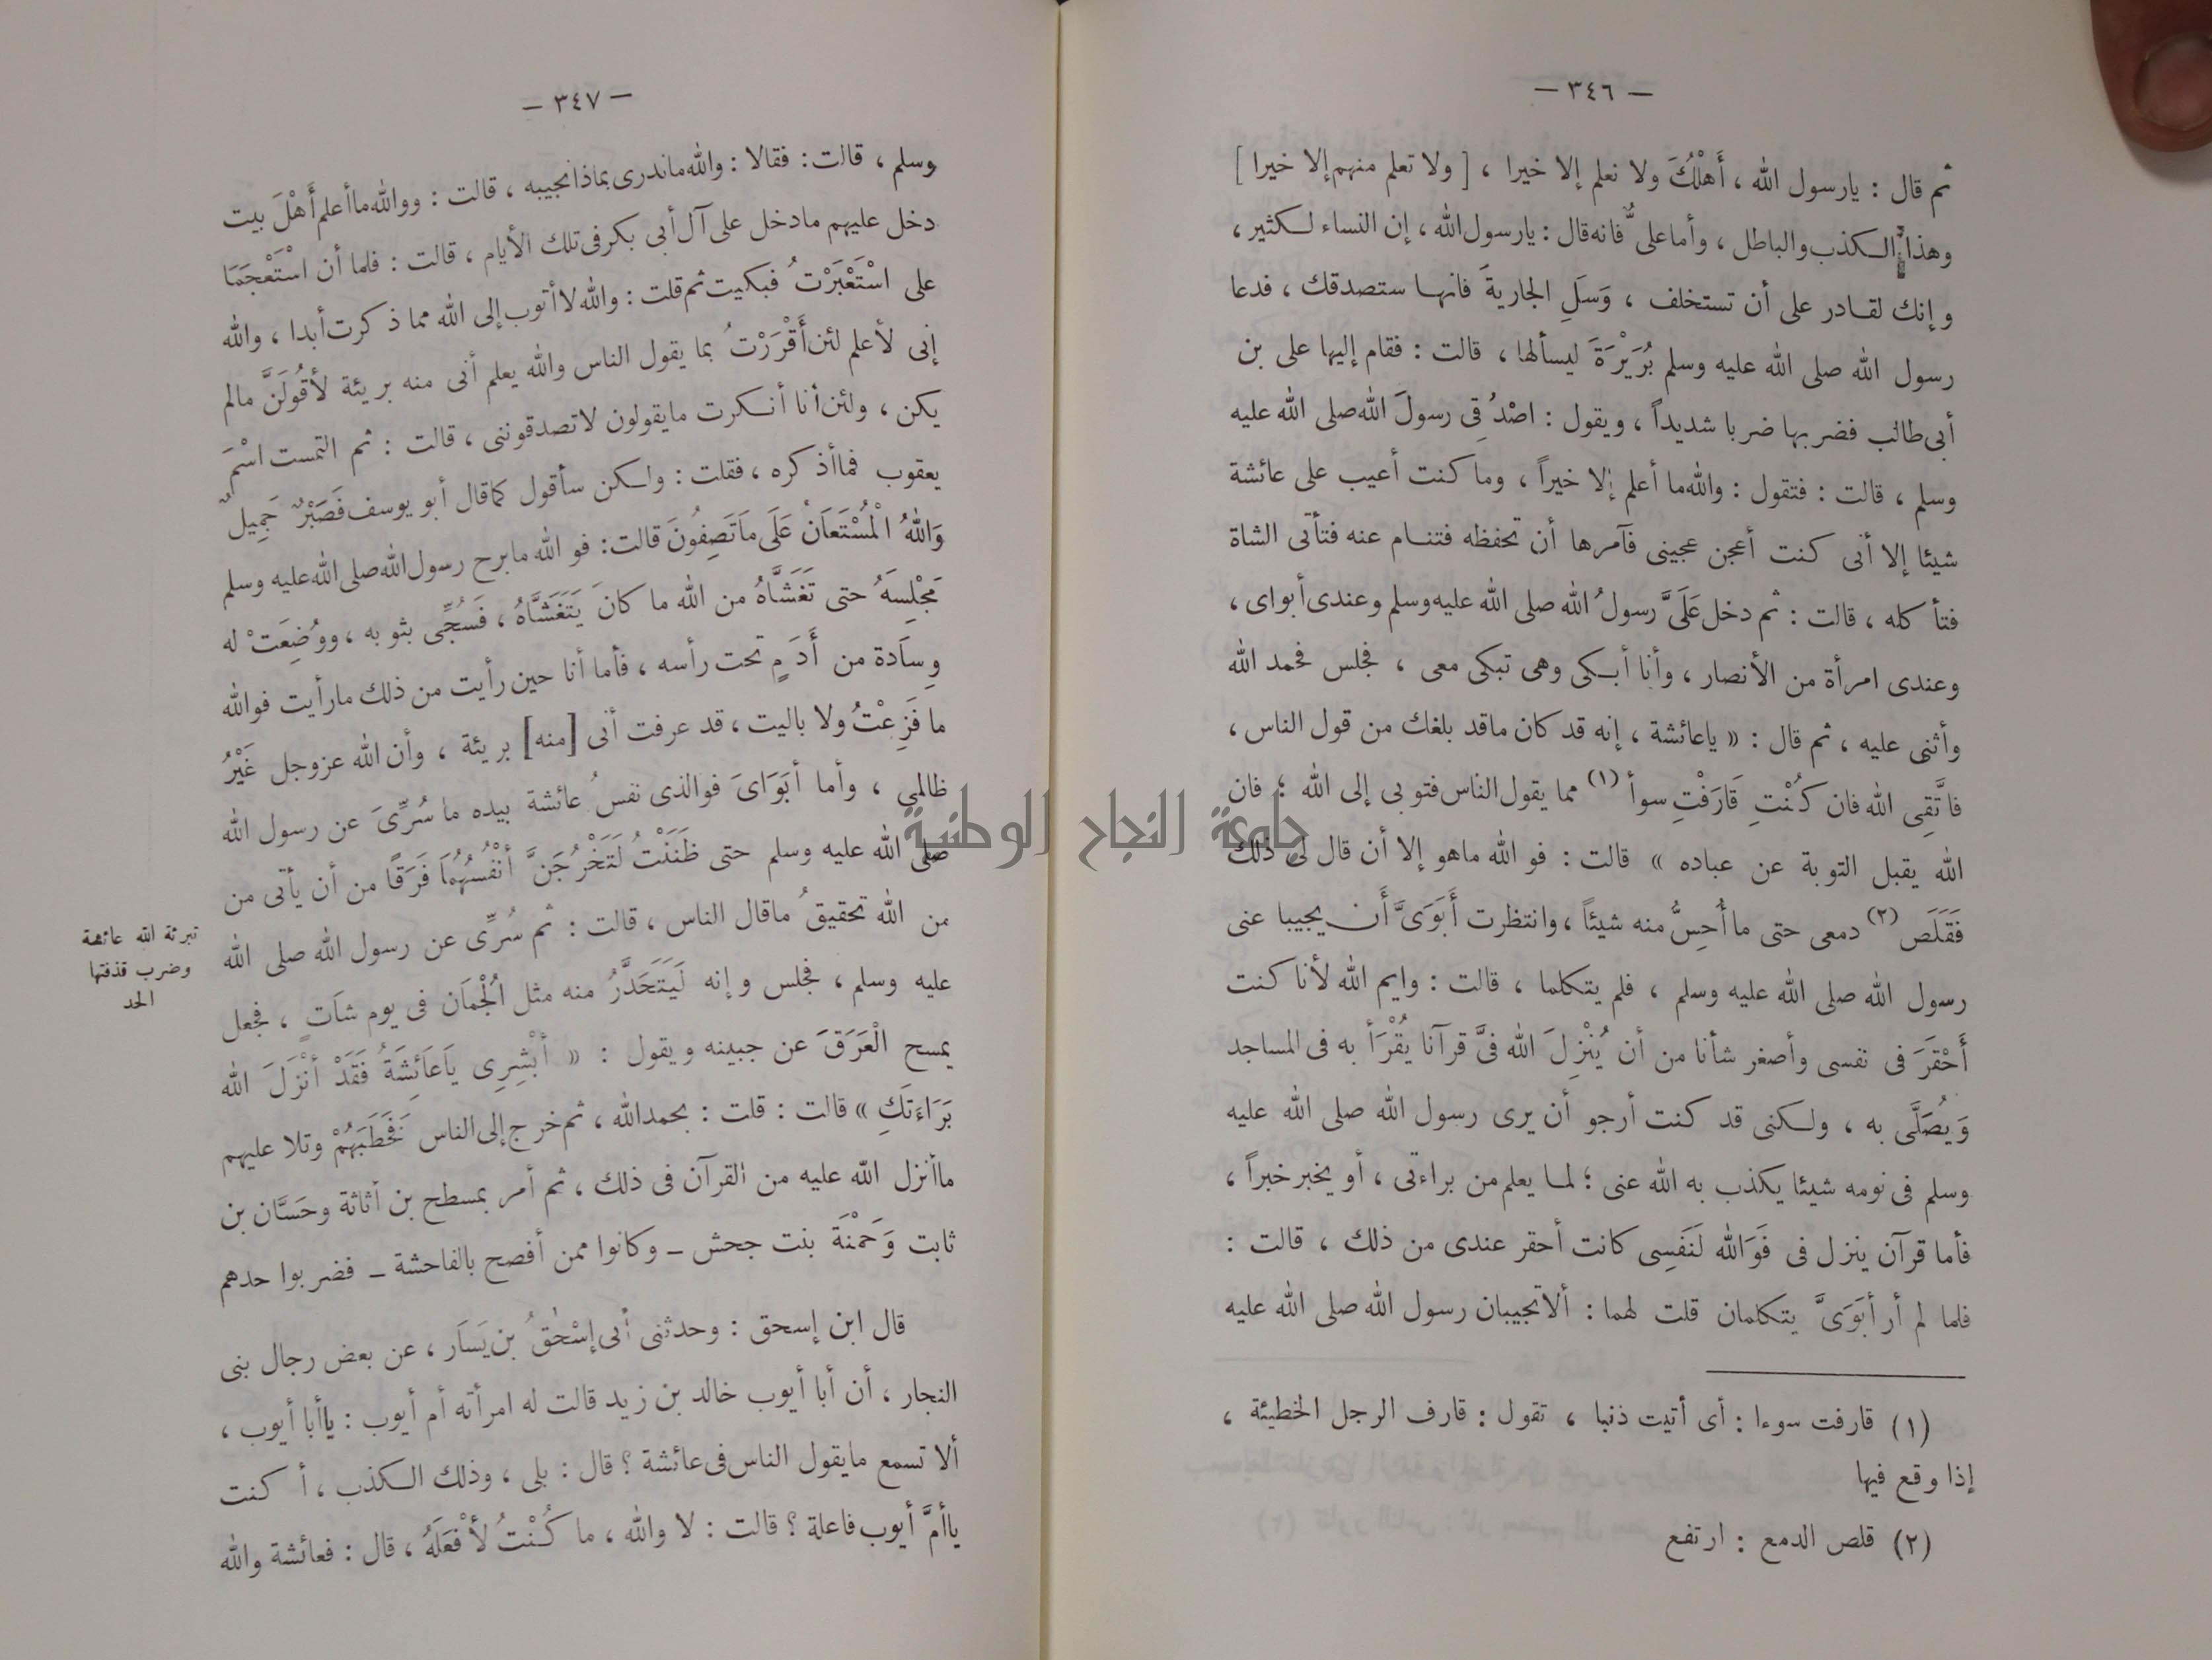 — ٣٤٦ —
ثم قال : يارسول الله ، أَهْلُكَ ولا نعلم إلا خيرا ، [ ولا تعلم منهم إلا خيرا ]
وهذا الكذب والباطل ، وأما علىٌّ فانه قال : يارسول الله ، إن النساء لكثير ،
وإنك لقادر على أن تستخلف ، وَسَلِ الجاريةَ فانها ستصدقك ، فدعا
رسول الله صلى الله عليه وسلم بُرَيْرَةَ ليسألها ، قالت : فقام إليها على بن
أبى طالب فضربها ضربا شديداً ، ويقول : اصْدُقِى رسولَ الله صلى الله عليه
وسلم ، قالت : فتقول : والله ما أعلم إلا خيراً ، وما كنت أعيب على عائشة
شيئا إلا أنى كنت أعجن عجينى فآمرها أن تحفظه فتنام عنه فتأتى الشاة
فتأكله ، قالت : ثم دخل عَلَىَّ رسولُ الله صلى الله عليه وسلم وعندى أبواى ،
وعندى امرأة من الأنصار ، وأنا أبكى وهى تبكى معى ، فجلس فحمد الله
وأثنى عليه ، ثم قال : « ياعائشة ، إنه قد كان ماقد بلغك من قول الناس ،
فاتَّقِى الله فان كُنْتِ قَارَفْتِ سوأ (١) مما يقول الناس فتوبى إلى الله ؛ فان
الله يقبل التوبة عن عباده » قالت : فو الله ماهو إلا أن قال لى ذلك
فَقَلَصَ (٢) دمعى حتى ما أُحِسُّ منه شيئاً ، وانتظرت أَبَوَىَّ أَن يجيبا عنى
رسول الله صلى الله عليه وسلم ، فلم يتكلما ، قالت : وايم الله لأنا كنت
أَحْقَرَ فى نفسى وأصغر شأنا من أن يُنْزِلَ الله فىَّ قرآنا يُقْرَأُ به فى المساجد
وَيُصَلَّى به ، ولكنى قد كنت أرجو أن يرى رسول الله صلى الله عليه
وسلم فى نومه شيئا يكذب به الله عنى ؛ لما يعلم من براءتى ، أو يخبر خبراً ،
فأما قرآن ينزل فى فَوَالله لَنَفَسِى كانت أحقر عندى من ذلك ، قالت :
فلما لم أر أبَوَىَّ يتكلمان قلت لهما : ألاتجيبان رسول الله صلى الله عليه
(١) قارفت سوءا : أى أتيت ذنبا ، تقول : قارف الرجل الخطيئة ،
إذا وقع فيها
(٢) قلص الدمع : ارتفع
— ٣٤٧ —
وسلم ، قالت : فقالا : والله ماندرى بماذا نجيبه ، قالت : ووالله ماأعلم أَهْلَ بيت
دخل عليهم مادخل على آل أبى بكر فى تلك الأيام ، قالت : فلما أن اسْتَعْجَمَا
على اسْتَعْبَرْتُ فبكيت ثم قلت : والله لا أتوب إلى الله مما ذكرت أبدا ، والله
إنى لأعلم لئن أَقْرَرْتُ بما يقول الناس والله يعلم أنى منه بريئة لأقُولَنَّ مالم
يكن ، ولئن أنا أنكرت مايقولون لاتصدقوننى ، قالت : ثم التمست اسْمَ
يعقوب فما أذكره ، فقلت : ولكن سأقول كماقال أبو يوسف فَصَبْرٌ جَمِيلٌ
وَاللهُ الْمُسْتَعَانُ عَلَى مَاتَصِفُونَ قالت : فو الله مابرح رسول الله صلى الله عليه وسلم
مَجْلِسَهُ حتى تَغَشَّاهُ من الله ما كانَ يَتَغَشَّاهُ ، فَسُجِّى بثوبه ، ووُضِعَتْ له
وِسَادة من أَدَمٍ تحت رأسه ، فأما أنا حين رأيت من ذلك مارأيت فوالله
ما فَزِعْتُ ولا باليت ، قد عرفت أنى [منه] بريئة ، وأن الله عزوجل غَيْرُ
ظالمى ، وأما أبَوَاىَ فوالذى نفسُ عائشة بيده ما سُرِّىَ عن رسول الله
صلى الله عليه وسلم حتى ظَنَنْتُ لَتَخْرُجَنَّ أنْفُسُهُمَا فَرَقًا من أن يأتى من
من الله تحقيقُ ماقال الناس ، قالت : ثم سُرِّى عن رسول الله صلى الله
عليه وسلم ، فجلس وإنه لَيَتَحَدَّرُ منه مثل الْجُمَان فى يوم شَاتٍ ، فجعل
يمسح الْعَرَقَ عن جبينه ويقول : « أبْشِرِى يَاعَائِشَةُ فَقَدْ أنْزَلَ الله
بَرَاءَتَكِ » قالت : قلت : بحمد الله ، ثم خرج إلى الناس فَخَطَبَهُمْ وتلا عليهم
ماأنزل الله عليه من القرآن فى ذلك ، ثم أمر بمسطح بن أثاثة وحَسَّان بن
ثابت وَحَمْنَةَ بنت جحش – وكانوا ممن أفصح بالفاحشة – فضربوا حدهم
قال ابن إسحق : وحدثنى أبى إسْحٰقُ بن يَسَار ، عن بعض رجال بنى
النجار ، أن أبا أيوب خالد بن زيد قالت له امرأته أم أيوب : ياأبا أيوب ،
ألا تسمع مايقول الناس فى عائشة ؟ قال : بلى ، وذلك الكذب ، أ كنت
ياأمَّ أيوب فاعلة ؟ قالت : لا والله ، ما كُنْتُ لأفْعَلَهُ ، قال : فعائشة والله
تبرئة الله عائشة
وضرب قذفتها
الحد
جامعة النجاح الوطنية